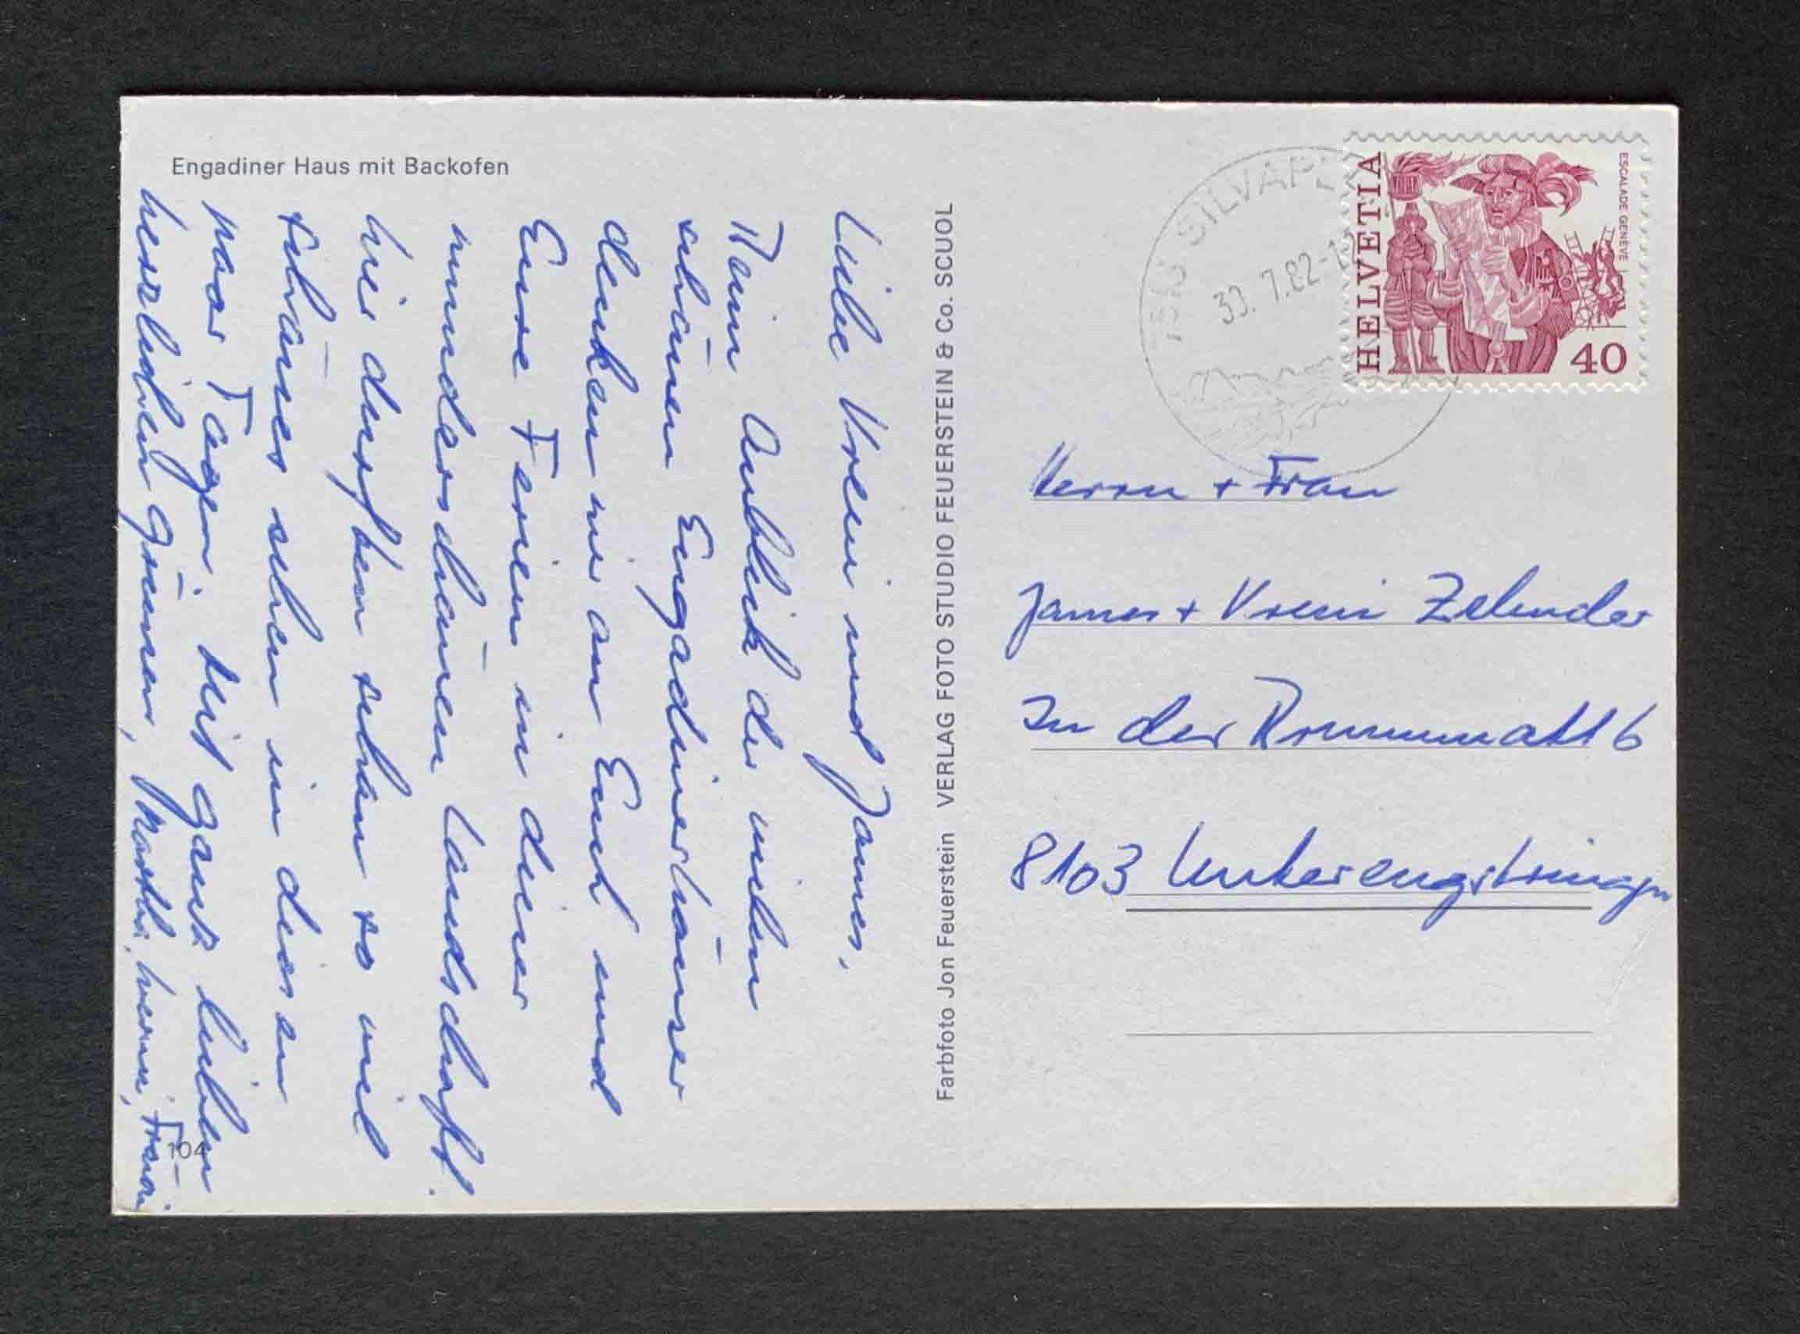 Engadiner Haus mit Backofen
Liebe Vreni und James,
Beim Anblick der vielen
schönen Engadinerhäuser
denken wir an Euch und
Eure Ferien in dieser
wunderschönen Landschaft.
Wir durften schon so viel
Schönes sehen in diesen
paar Tagen. Mit ganz lieben
herzlichen Grüssen,
104
Farbfoto Jon Feuerstein VERLAG FOTO STUDIO FEUERSTEIN & Co. SCUOL
SILVAPL
30. 7.82-1
HELVETIA
ESCALADE GENÈVE
40
Herrn + Frau
James + Vreni Zehnder
In der Krummmatt 6
8103 Unterengstringen